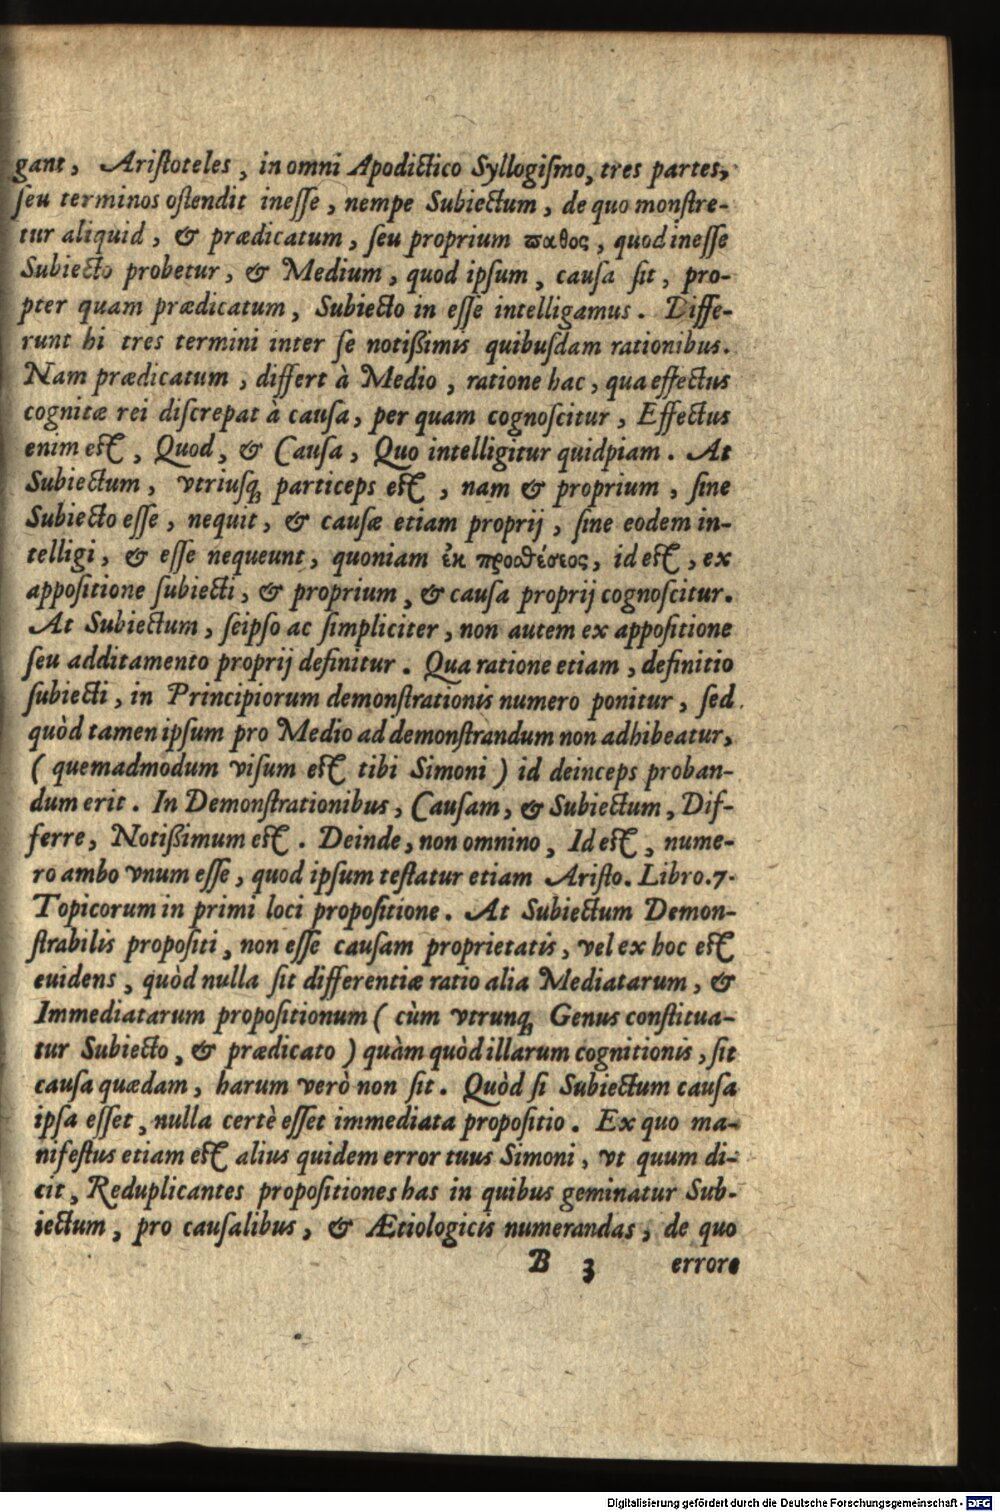 gant, Ariſtoteles, in omni Apodictico Syllogiſmo, tres partes,
ſeu terminos oſtendit ineſſe, nempe Subiectum, de quo monſtre-
tur aliquid, & prædicatum, ſeu proprium παθος, quod ineſſe
Subiecto probetur, & Medium, quod ipſum, cauſa ſit, pro-
pter quam prædicatum, Subiecto in eſſe intelligamus. Diffe-
runt hi tres termini inter ſe notißimis quibuſdam rationibus.
Nam prædicatum, differt à Medio, ratione hac, qua effectus
cognitæ rei diſcrepat à cauſa, per quam cognoſcitur, Effectus
enim eſt, Quod, & Cauſa, Quo intelligitur quidpiam. At
Subiectum, vtriuſq; particeps eſt, nam & proprium, ſine
Subiecto eſſe, nequit, & cauſæ etiam proprij, ſine eodem in-
telligi, & eſſe nequeunt, quoniam ἐκ προσθέσεος, id eſt, ex
appoſitione ſubiecti, & proprium, & cauſa proprij cognoſcitur.
At Subiectum, ſeipſo ac ſimpliciter, non autem ex appoſitione
ſeu additamento proprij definitur. Qua ratione etiam, definitio
ſubiecti, in Principiorum demonſtrationis numero ponitur, ſed
quòd tamen ipſum pro Medio ad demonſtrandum non adhibeatur,
(quemadmodum viſum eſt tibi Simoni) id deinceps proban-
dum erit. In Demonſtrationibus, Cauſam, & Subiectum, Dif-
ferre, Notißimum eſt. Deinde, non omnino, Id eſt, nume-
ro ambo vnum eſſe, quod ipſum teſtatur etiam Ariſto. Libro.7.
Topicorum in primi loci propoſitione. At Subiectum Demon-
ſtrabilis propoſiti, non eſſe cauſam proprietatis, vel ex hoc eſt
euidens, quòd nulla ſit differentiæ ratio alia Mediatarum, &
Immediatarum propoſitionum (cùm vtrunq; Genus conſtitua-
tur Subiecto, & prædicato) quàm quòd illarum cognitionis, ſit
cauſa quædam, harum verò non ſit. Quòd ſi Subiectum cauſa
ipſa eſſet, nulla certè eſſet immediata propoſitio. Ex quo ma-
nifeſtus etiam eſt alius quidem error tuus Simoni, vt quum di-
cit, Reduplicantes propoſitiones has in quibus geminatur Sub-
iectum, pro cauſalibus, & Ætiologicis numerandas, de quo
B 3 errore
Digitalisierung gefördert durch die Deutsche Forschungsgemeinschaft - DFG